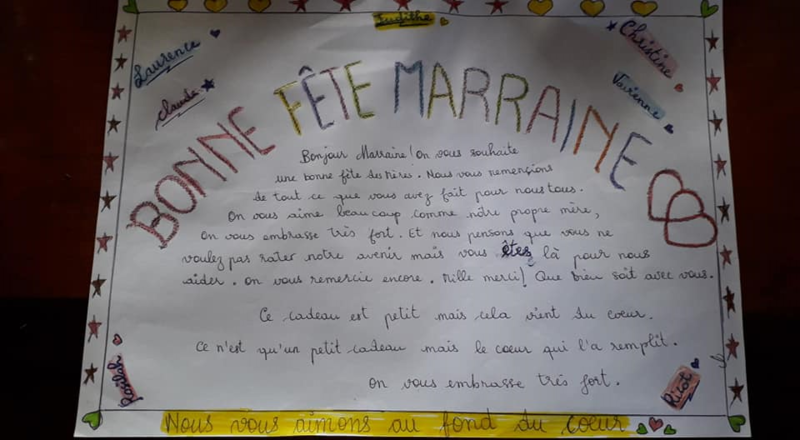 Judithe
Laurence
Christine
Claude
BONNE FÊTE MARRAINE
Bonjour Marraine! On vous souhaite
une bonne fête des Mères. Nous vous remerçions
de tout ce que vous avez fait pour nous tous.
On vous aime beaucoup comme nôtre propre mère,
On vous embrasse très fort. Et nous pensons que vous ne
voulez pas rater notre avenir mais vous êtes là pour nous
aider. On vous remercie encore. Mille merci! Que Dieu soit avec vous.
Ce cadeau est petit mais cela vient du coeur.
Ce n'est qu'un petit cadeau mais le coeur qui l'a remplit.
On vous embrasse très fort.
Nous vous aimons au fond du coeur